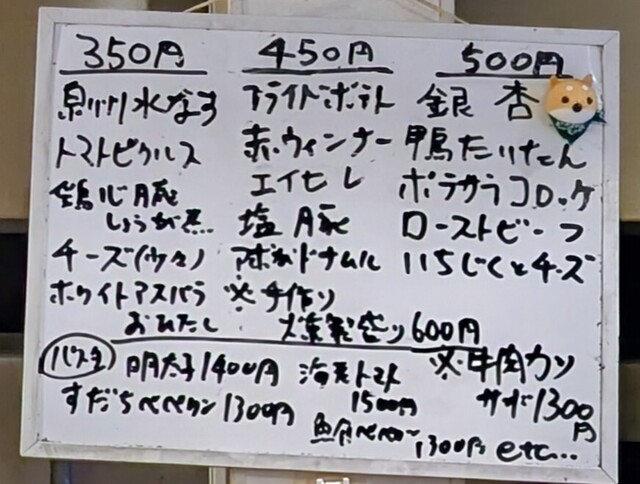 350円
泉州水なす
トマトピクルス
鶏心臓
しょうが煮
チーズ(ウ々)
ホワイトアスパラ
おひたし
450円
フライドポテト
赤ウィンナー
エイヒレ
塩豚
アボカドナムル
※手作り
燻製盛り600円
500円
銀杏
鴨たいたん
ポテサラコロッケ
ローストビーフ
いちじくとチーズ
パスタ
明太子1400円
すだちペペロン1300円
海老トマト
1500円
1300円 etc...
※牛肉カツ
サンド1300
円